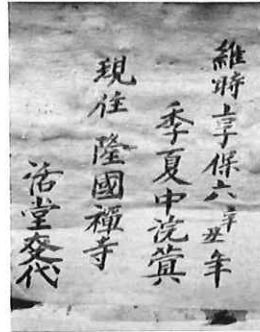 維時享保六辛丑年
季夏中浣蓂
現住隆國禪寺
活堂代